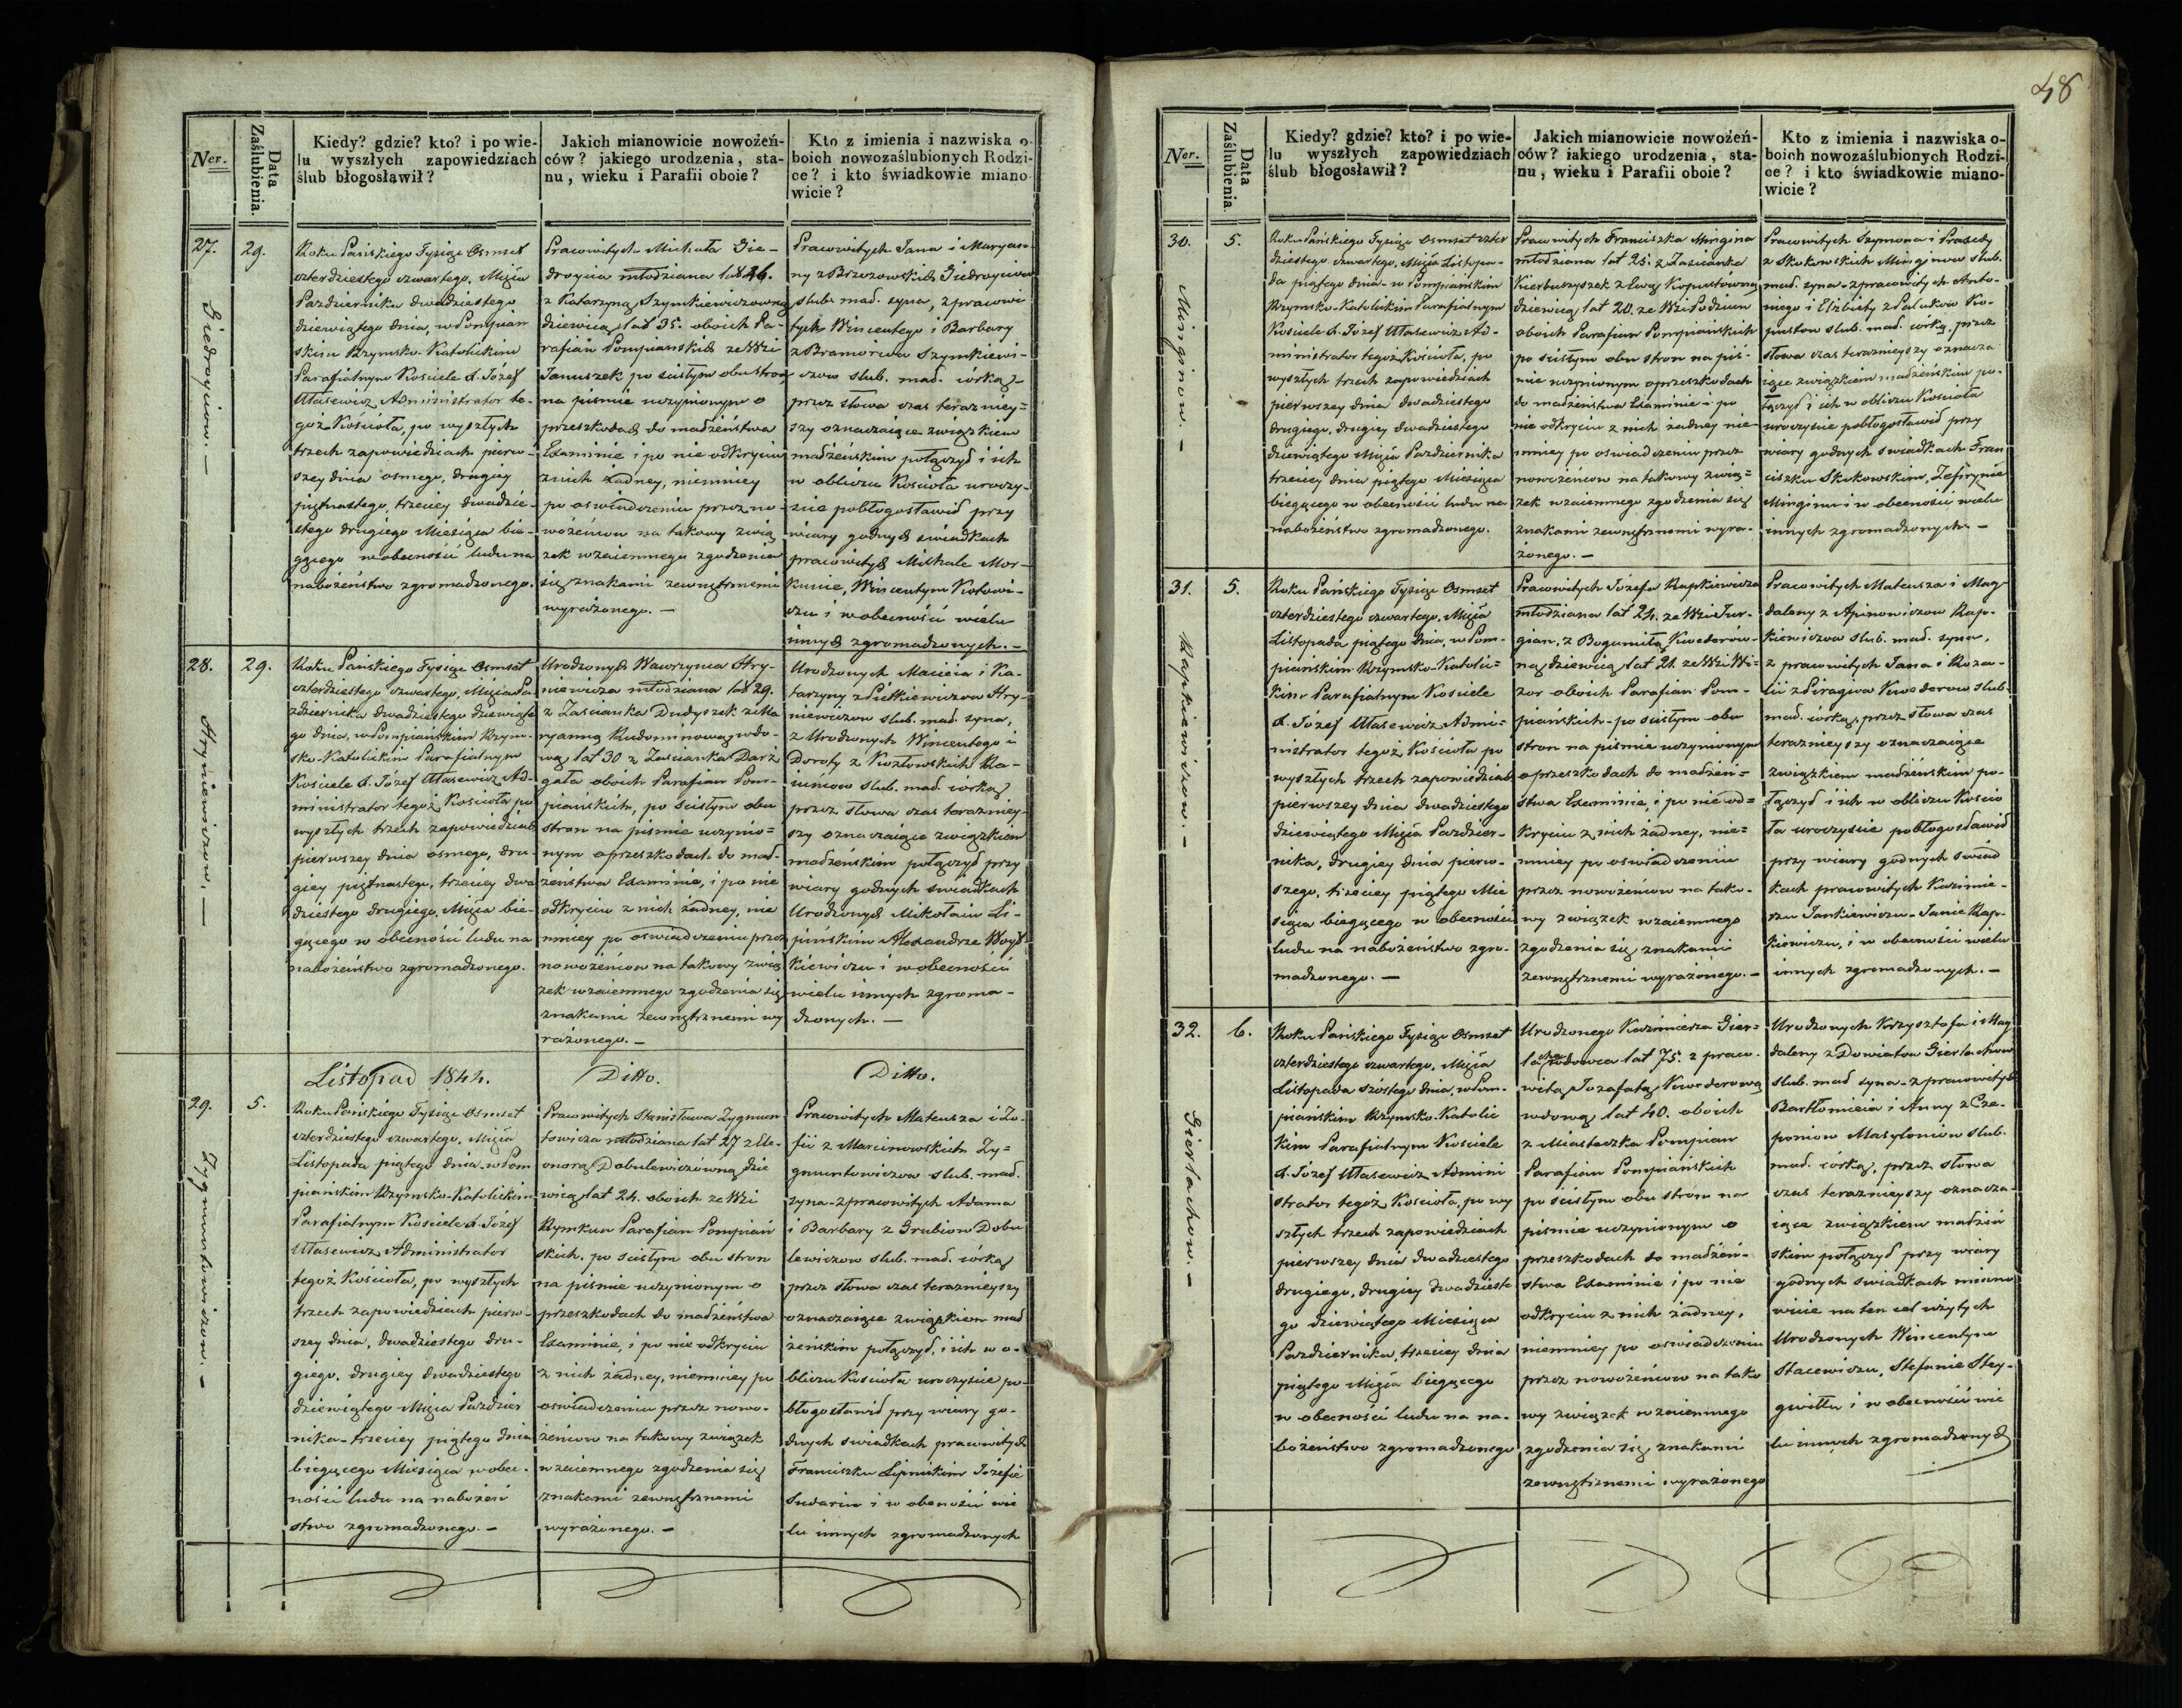 48
Ner.
Data Zaślubienia.
Kiedy? gdzie? kto? i po wie-
lu wyszłych zapowiedziach
ślub błogosławił?
Jakich mianowicie nowożeń-
ców? jakiego urodzenia, sta-
nu, wieku i Parafii oboie?
Kto z imienia i nazwiska o-
boich nowozaślubionych Rodzi-
ce? i kto świadkowie miano
wicie?
27.
29.
Giedroyciow. —
Roku Pańskiego Tysiąc Osmset
czterdziestego czwartego, Miąca
Pazdziernika dwadziestego
dziewiątego dnia, w Pompiań
skim Rzymsko-Katolickim
Parafialnym Kosciele X. Józef
Ułasewicz Administrator te-
goż Kościoła, po wyszłych
trzech zapowiedziach pierw-
szey dnia osmego, drugiey
piętnastego, trzeciey dwadzie-
stego drugiego Miesiąca bie-
gącego w obecności ludu na
nabożeństwo zgromadzonego.
Pracowitych Michała Gie-
droycia młodziana lat 26.
z Katarzyną Szymkiewiczowną
dziewicą lat 35. oboich Pa-
rafian Pompianskich ze Wsi
Januszek po scisłym obu stron
na pismie uczynionym o
przeszkodach do madżeństwa
Examinie i po nie odkryciu
z nich żadney, niemniey
po oswiadczeniu przez no-
wożeńcow na takowy zwią
zek wzaiemnego zgodzenia
się znakami zewnętrznemi
wyrażonego. —
Pracowitych Jana i Maryan-
ny z Brzozowskich Giedroyciow
slub. mad. syna, z pracowi
tych Wincentego i Barbary
z Bramorow Szymkiewi-
czow slub. mad. córką
przez słowa czas teraz niey=
szy oznaczaiące związkiem
madżeńskim połączył i ich
w obliczu Kościoła uroczy-
scie pobłogosławił przy
wiary godnych swiadkach
pracowitych Michale Mor-
kunie, Wincentym Kotowi-
czu i w obecności wielu
innych zgromadzonych. —
28.
29.
Hryniewiczow. —
Roku Pańskiego Tysiąc Osmset
czterdziestego czwartego, Miąca Pa
zdziernika dwadziestego dziewiąte
go dnia, w Pompianskim Rzym-
sko-Katolickim Parafialnym
Kosciele X. Józef Ułasewicz Ad-
ministrator tegoż Kościoła po
wyszłych trzech zapowiedziach
pierwszey dnia osmego, dru-
giey piętnastego, trzeciey dwa
dziestego drugiego, Miąca bie-
gącego w obecności ludu na
nabożeństwo zgromadzonego.
Urodzonych Wawrzynca Hry-
niewicza młodziana lat 29.
z Zascianka Dudyszek z Ma
ryanną Rudominową wdo-
wą lat 30 z Zascianka Darż
gała oboich Parafian Pom-
piańskich, po scisłym obu
stron na pismie uczynio=
nym o przeszkodach do mad-
żeństwa Examinie, i po nie
odkryciu z nich żadney, nie
mniey po oswiadczeniu przez
nowożeńcow na takowy zwią
zek wzaiemnego zgodzenia się
znakami zewnętrznemi wy
rażonego. —
Urodzonych Macieia i Ka-
tarzyny z Pietkiewiczow Hry-
niewiczow slub. mad. syna,
z Urodzonych Wincentego i
Doroty z Kozłowskich Ra-
iuńcow slub. mad. córką
przez słowa czas terazniey-
szy oznaczaiące związkiem
madżeńskim połączył przy
wiary godnych swiadkach
Urodzonych Mikołaiu Li-
pińskim Alexandrze Woyt
kiewiczu i w obecności
wielu innych zgroma-
dzonych. —
Listopad 1844.
Ditto.
Ditto.
29.
5.
Zygmuntowiczow. —
Roku Pańskiego Tysiąc Osmset
czterdziestego czwartego, Miąca
Listopada piątego dnia w Pom
piańskim Rzymsko-Katolickim
Parafialnym Kosciele X. Józef
Ułasewicz Administrator
tegoż Kościoła, po wyszłych
trzech zapowiedziach pierw-
szey dnia, dwadziestego dru-
giego, drugiey dwadziestego
dziewiątego Miąca Pazdzier
nika - trzeciey piątego dnia
biegącego Miesiąca w obec-
ności ludu na nabożeń
stwo zgromadzonego. —
Pracowitych Stanisława Zygmun
towicza młodziana lat 27 z Ele-
onorą Dobulewiczówną dzie
wicą lat 24. oboich ze Wsi
Rymkun Parafian Pompiań
skich, po scisłym obu stron
na pismie uczynionym o
przeszkodach do madżeństwa
Examinie, i po nie odkryciu
z nich żadney, niemniey po
oswiadczeniu przez nowo-
żeńcow na takowy związek
wzaiemnego zgodzenia się
znakami zewnętrznemi
wyrażonego. —
Pracowitych Mateusza i Zo-
fii z Marcinowskich Zy=
gmuntowiczow slub. mad.
syna - z pracowitych Adama
i Barbary z Grubiow Dobu
lewiczow slub. mad. córką
przez słowa czas terazniejszy
oznaczaiące związkiem mad
żeńskim połączył, i ich w o-
bliczu Kościoła uroczyscie po-
błogosławił przy wiary go-
dnych swiadkach pracowitych
Franciszku Lipnickim Józefie
Sudariu i w obecności wie
lu innych zgromadzonych
Ner.
Data Zaślubienia.
Kiedy? gdzie? kto? i po wie-
lu wyszłych zapowiedziach
ślub błogosławił?
Jakich mianowicie nowożeń-
ców? iakiego urodzenia, sta-
nu, wieku i Parafii oboie?
Kto z imienia i nazwiska o-
boich nowozaślubionych Rodzi-
ce? i kto świadkowie miano-
wicie?
30.
5.
Minginow. —
Roku Pańskiego Tysiąc Osmset czter
dziestego czwartego, Miąca Listopa-
da piątego dnia - w Pompiańskim
Rzymsko-Katolickim Parafialnym
Kosciele X. Józef Ułasewicz Ad-
ministrator tegoż Kościoła, po
wyszłych trzech zapowiedziach
pierwszey dnia dwadziestego
drugiego, drugiey dwadziestego
dziewiątego Miąca Pazdziernika
trzeciey dnia piątego Miesiąca
biegącego w obecności ludu na
nabożeństwo zgromadzonego.
Pracowitych Franciszka Mingina
młodziana lat 25. z Zascianka
Kierbuzyszek z Ewą Kopustówną
dziewicą lat 20. ze Wsi Podzien
oboich Parafian Pompiańskich
po scisłym obu stron na piś-
mie uczynionym o przeszkodach
do madżeństwa Examinie i po
nie odkryciu z nich żadney nie-
mniey po oswiadczeniu przez
nowożeńcow na takowy zwią=
zek wzaiemnego zgodzenia się
znakami zewnętrznemi wyra-
żonego. —
Pracowitych Szymona i Praxedy
z Skokowskich Minginow slub.
mad. syna - z pracowitych Anto-
niego i Elżbiety z Palukow Ko-
pustow slub. mad. córką, przez
słowa czas terazniejszy oznacza
iące związkiem madżeńskim po-
łączył i ich w obliczu Kościoła
uroczyscie pobłogosławił przy
wiary godnych swiadkach Fran
ciszku Skokowskim, Zefirynie
Minginu i w obecności wielu
innych zgromadzonych. —
31.
5.
Rapkiewiczow. —
Roku Pańskiego Tysiąc Osmset
czterdziestego czwartego, Miąca
Listopada piątego dnia, w Pom-
piańskim Rzymsko-Katolic=
kim Parafialnym Kosciele
X. Józef Ułasewicz Admi=
nistrator tegoż Kościoła po
wyszłych trzech zapowiedziach
pierwszey dnia dwadziestego
dziewiątego Miąca Pazdzier-
nika, drugiey dnia pierw-
szego, trzeciey piątego Mie
siąca biegącego w obecności
ludu na nabożeństwo zgro-
madzonego. —
Pracowitych Józefa Rapkiewicza
młodziana lat 24. ze Wsi Jur-
gian, z Bogumiłą Kwederów-
ną dziewicą lat 21. ze Wsi Wi=
zor oboich Parafian Pom-
piańskich - po scisłym obu
stron na pismie uczynionym
o przeszkodach do madżeń=
stwa Examinie, i po nie od=
kryciu z nich żadney, nie=
mniey po oswiadczeniu
przez nowożeńcow na tako-
wy związek wzaiemnego
zgodzenia się znakami
zewnętrznemi wyrażonego. —
Pracowitych Mateusza i Mag
daleny z Apinowiczow Rap-
kiewiczow slub. mad. syna,
z pracowitych Jana i Roza-
lii z Piragiow Kwederow slub
mad. córką, przez słowa czas
terazniejszy oznaczaiące
związkiem madżeńskim po-
łączył i ich w obliczu Koscio
ła uroczyscie pobłogosławił
przy wiary godnych swiad
kach pracowitych Kazimie-
rzu Jankiewiczu - Janie Rap-
kiewiczu, i w obecności wielu
innych zgromadzonych. —
32.
6.
Gierlachow. —
Roku Pańskiego Tysiąc Osmset
czterdziestego czwartego, Miąca
Listopada szóstego dnia, w Pom-
piańskim Rzymsko-Katolic
kim Parafialnym Kosciele
X. Józef Ułasewicz Admini
strator tegoż Kościoła, po wy
szłych trzech zapowiedziach
pierwszey dnia dwadziestego
drugiego, drugiey dwadzieste
go dziewiątego Miesiąca
Pazdziernika, trzeciey dnia
piątego Miąca biegącego
w obecności ludu na na-
bożeństwo zgromadzonego
Urodzonego Kazimierza Gier=
lacha wdowca lat 75. z praco-
witą Jozafatą Kwederową
wdową lat 40. oboich
z Miasteczka Pompian
Parafian Pompiańskich
po scisłym obu stron na
pismie uczynionym o
przeszkodach do madżeń-
stwa Examinie i po nie
odkryciu z nich żadney,
niemniey po oswiadczeniu
przez nowożeńcow na tako
wy związek wzaiemnego
zgodzenia się znakami
zewnętrznemi wyrażonego
Urodzonych Krzysztofa i Mag
daleny z Dowiatow Gierlachow
slub. mad syna - z pracowitych
Bartłomieia i Anny z Cze-
poniow Masyloniow slub.
mad. córką, przez słowa
czas terazniejszy oznacza-
iące związkiem madżeń
skim połączył przy wiary
godnych swiadkach miano
wicie na ten cel użytych
Urodzonych Wincentym
Stacewiczu, Stefanie Stey-
gwiłłu i w obecności wie
lu innych zgromadzonych